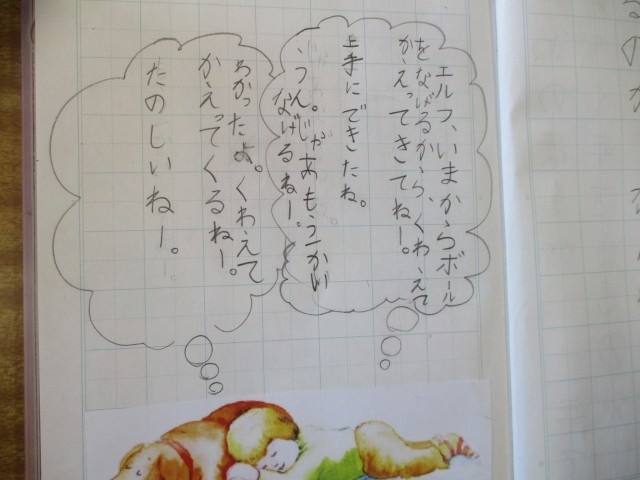 エルフ、いまからボール
をなげるから、くわえて
かえってきてねー。
上手にできたね。
うん。じゃあもう一かい
なげるねー。
わかったよ。くわえて
かえってくるねー。
たのしいねー。